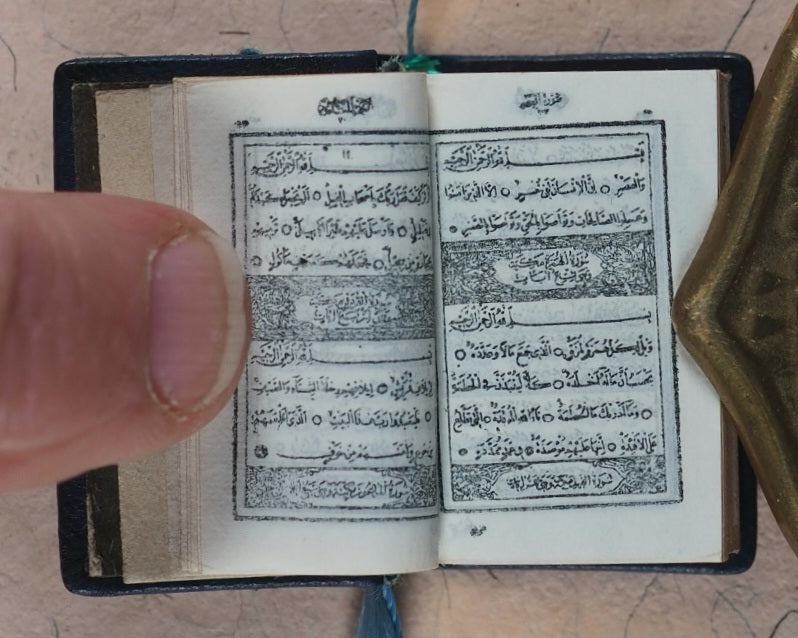 بِسْمِ اللهِ الرَّحْمٰنِ الرَّحِيمِ
وَالْعَصْرِ ○ اِنَّ الْاِنْسَانَ لَفِى خُسْرٍ ○ اِلَّا الَّذِينَ اٰمَنُوا
وَعَمِلُوا الصَّالِحَاتِ وَتَوَاصَوْا بِالْحَقِّ وَتَوَاصَوْا بِالصَّبْرِ
سورة الهمزة مكية
وهى تسع آيات
بِسْمِ اللهِ الرَّحْمٰنِ الرَّحِيمِ
وَيْلٌ لِكُلِّ هُمَزَةٍ لُمَزَةٍ ○ اَلَّذِى جَمَعَ مَالًا وَعَدَّدَهُ ○
يَحْسَبُ اَنَّ مَالَهُ اَخْلَدَهُ ○ كَلَّا لَيُنْبَذَنَّ فِى الْحُطَمَةِ
○ وَمَا اَدْرٰيكَ مَا الْحُطَمَةُ ○ نَارُ اللهِ الْمُوقَدَةُ ○ الَّتِى تَطَّلِعُ
عَلَى الْاَفْئِدَةِ ○ اِنَّهَا عَلَيْهِمْ مُؤْصَدَةٌ ○ فِى عَمَدٍ مُمَدَّدَةٍ ○
بِسْمِ اللهِ الرَّحْمٰنِ الرَّحِيمِ
اَلَمْ تَرَ كَيْفَ فَعَلَ رَبُّكَ بِاَصْحَابِ الْفِيلِ ○ اَلَمْ يَجْعَلْ كَيْدَهُمْ
فِى تَضْلِيلٍ ○ وَاَرْسَلَ عَلَيْهِمْ طَيْرًا اَبَابِيلَ ○ تَرْمِيهِمْ
بِحِجَارَةٍ مِنْ سِجِّيلٍ ○ فَجَعَلَهُمْ كَعَصْفٍ مَأْكُولٍ ○
بِسْمِ اللهِ الرَّحْمٰنِ الرَّحِيمِ
لِاِيلَافِ قُرَيْشٍ ○ اِيلَافِهِمْ رِحْلَةَ الشِّتَاءِ وَالصَّيْفِ
○ فَلْيَعْبُدُوا رَبَّ هٰذَا الْبَيْتِ ○ الَّذِى اَطْعَمَهُمْ
مِنْ جُوعٍ وَاٰمَنَهُمْ مِنْ خَوْفٍ